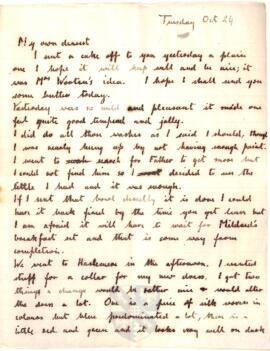 Tuesday Oct 24
My own dearest
I sent a cake off to you yesterday a plain
one I hope it will keep well and be nice; it
was Mrs Wooten's idea. I hope I shall send you
some butter today.
Yesterday was so mild and pleasant it made one
feel quite good tempered and jolly.
I did do all those washes as I said I should, though
I was nearly hung up by not having enough paint.
I went to search for Father to get more but
I could not find him so I decided to use the
little I had and it was enough.
If I sent that bowl directly it is done I could
have it back fired by the time you get leave but
I am afraid it will have to wait for Mildred's
breakfast set and that is some way from
completion.
We went to Haslemere in the afternoon. I wanted
stuff for a collar for my new dress. I got two
things a change would be rather nice & would alter
the dress a lot. One is a piece of silk woven in
colours but blue predominated a lot, there is a
little red and green and it looks very well on dark